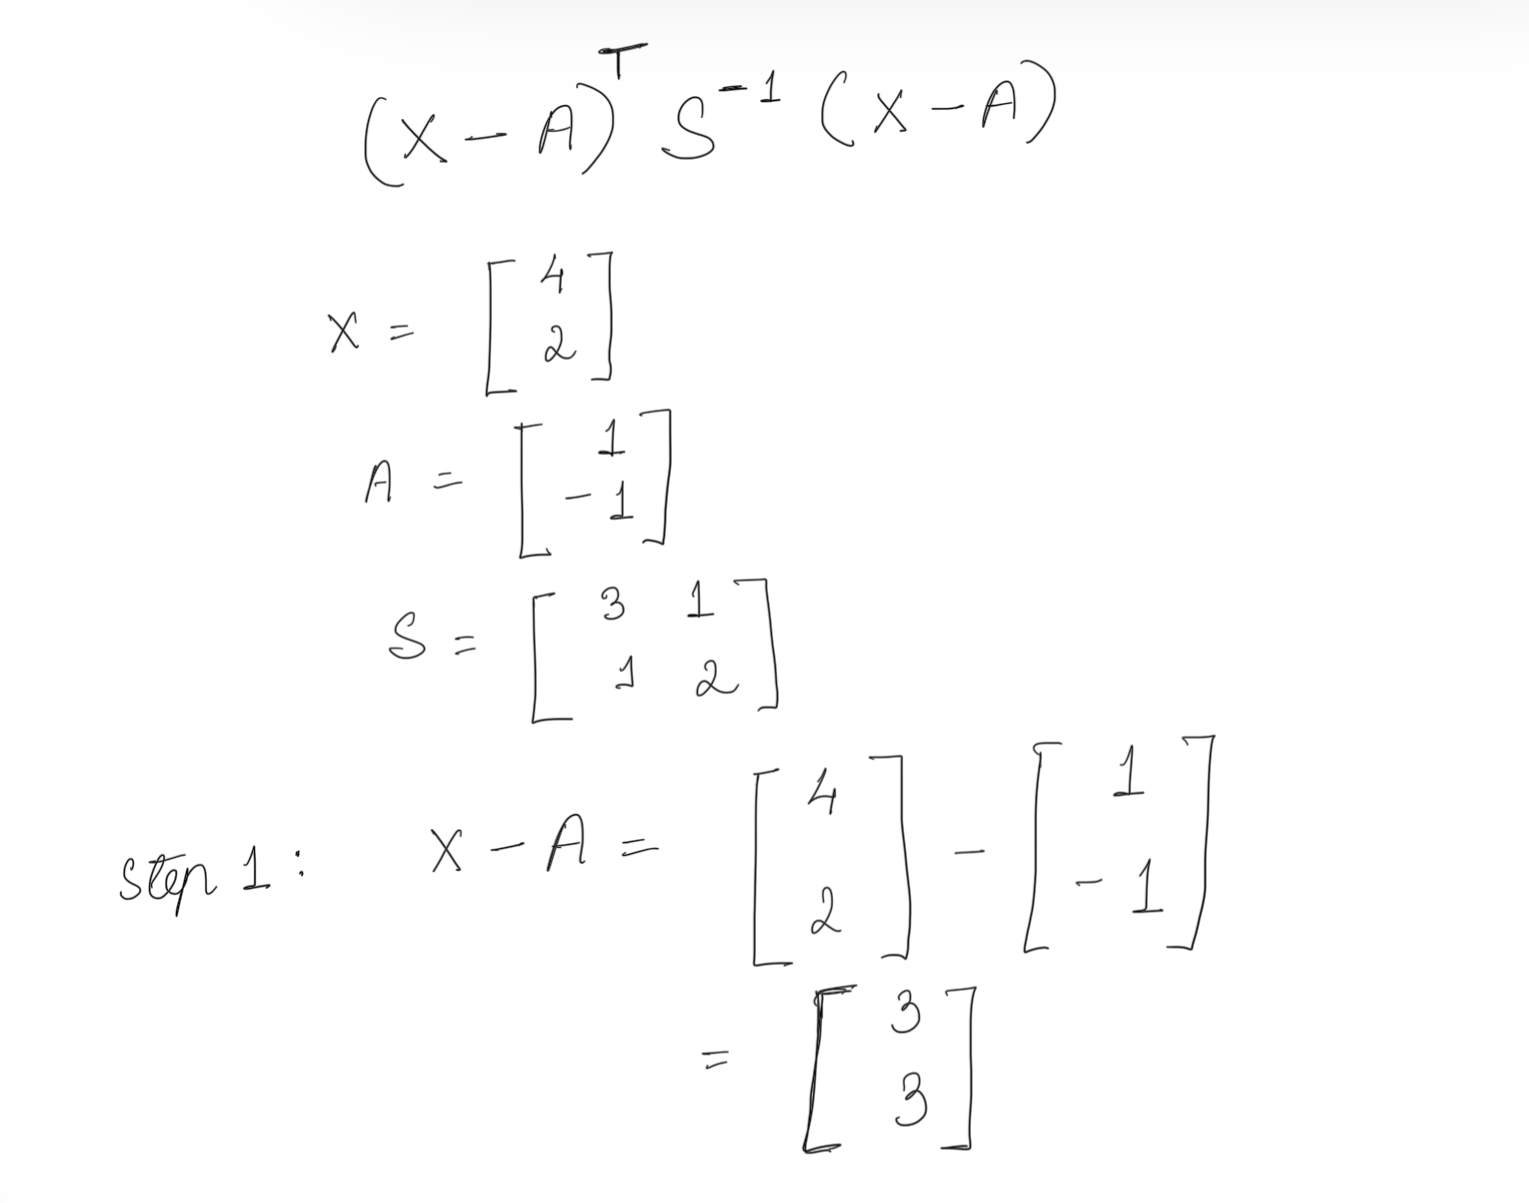 (X - A)ᵀ S⁻¹ (X - A)
X = [ 4
2 ]
A = [ 1
- 1 ]
S = [ 3 1
1 2 ]
Step 1 : X - A = [ 4
2 ] - [ 1
- 1 ]
= [ 3
3 ]